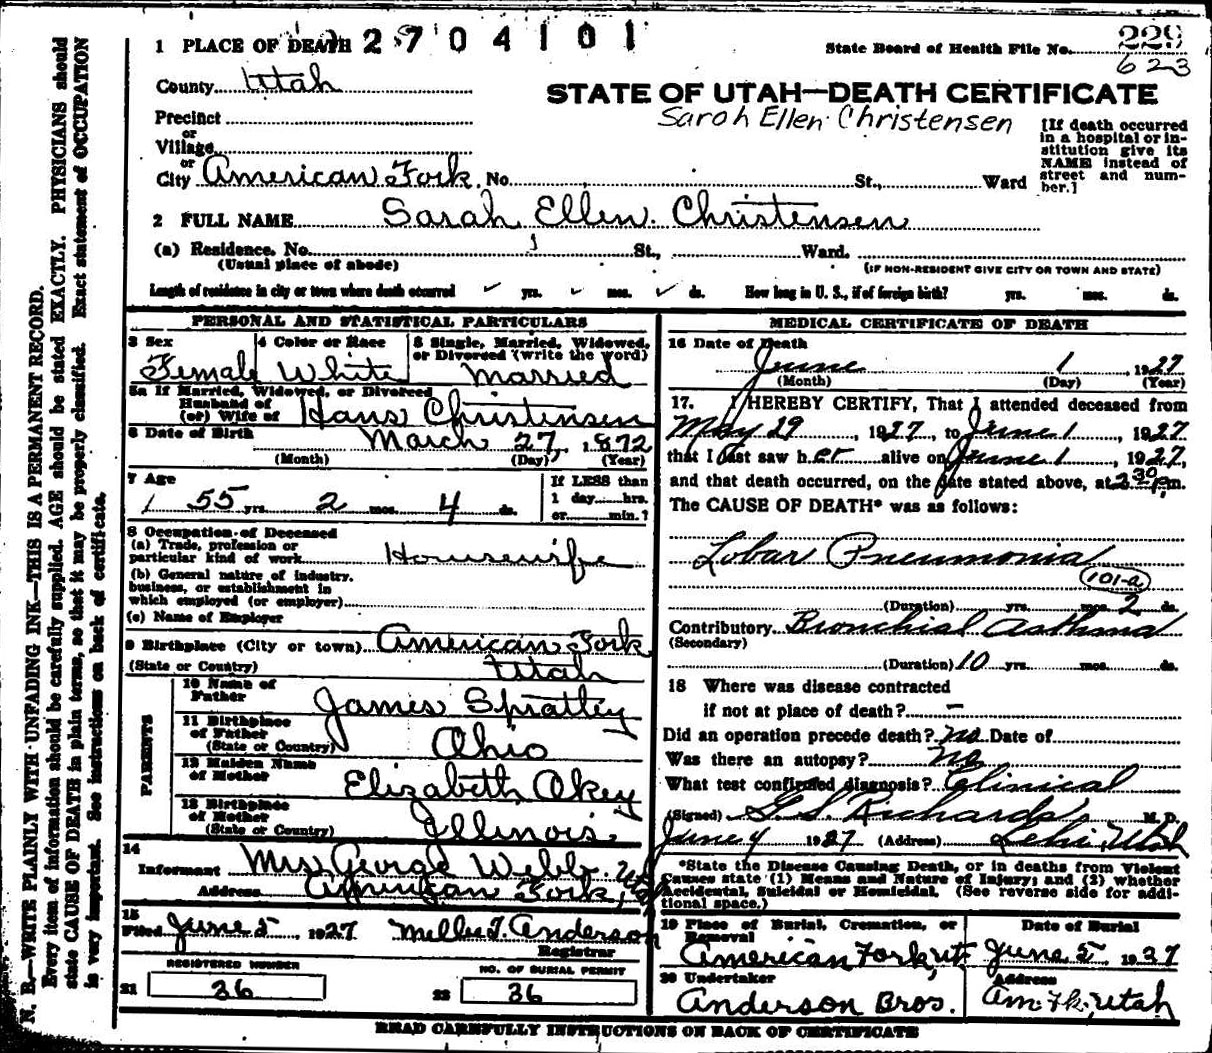 1 PLACE OF DEATH 2704101
State Board of Health File No. 229
623
County Utah
STATE OF UTAH—DEATH CERTIFICATE
Sarah Ellen Christensen
Precinct
or
Village
or
City American Fork No. St., Ward
[If death occurred in a hospital or institution give its NAME instead of street and number.]
2 FULL NAME Sarah Ellen Christensen
(a) Residence. No. St., Ward.
(Usual place of abode)
(IF NON-RESIDENT GIVE CITY OR TOWN AND STATE)
Length of residence in city or town where death occurred yrs. mos. ds. How long in U. S., if of foreign birth? yrs. mos. ds.
PERSONAL AND STATISTICAL PARTICULARS
3 Sex Female
4 Color or Race White
5 Single, Married, Widowed, or Divorced (write the word) Married
5a If Married, Widowed, or Divorced
Husband of
(or) Wife of Hans Christensen
6 Date of Birth March 27, 1872
(Month) (Day) (Year)
7 Age 55 yrs. 2 mos. 4 ds.
If LESS than
1 day hrs.
or min.?
8 Occupation of Deceased
(a) Trade, profession or
particular kind of work Housewife
(b) General nature of industry,
business, or establishment in
which employed (or employer)
(c) Name of Employer
9 Birthplace (City or town) American Fork
(State or Country) Utah
PARENTS
10 Name of Father James Spratley
11 Birthplace of Father (State or Country) Ohio
12 Maiden Name of Mother Elizabeth Okey
13 Birthplace of Mother (State or Country) Illinois
14
Informant Mrs George Webb
Address American Fork, Ut
15
Filed June 5, 1927 Millie T. Anderson
Registrar
REGISTERED NUMBER
21 36
NO. OF BURIAL PERMIT
22 36
MEDICAL CERTIFICATE OF DEATH
16 Date of Death
June 1, 1927
(Month) (Day) (Year)
17. I HEREBY CERTIFY, That I attended deceased from
May 29, 1927, to June 1, 1927
that I last saw her alive on June 1, 1927,
and that death occurred, on the date stated above, at 2 30 P.m.
The CAUSE OF DEATH* was as follows:
Lobar Pneumonia
101-a
(Duration) yrs. mos. 2 ds.
Contributory Bronchial Asthma
(Secondary)
(Duration) 10 yrs. mos. ds.
18 Where was disease contracted
if not at place of death? —
Did an operation precede death? no Date of
Was there an autopsy? no
What test confirmed diagnosis? Clinical
(Signed) G. S. Richards M. D.
June 4 1927 (Address) Lehi, Utah
*State the Disease Causing Death, or in deaths from Violent
Causes state (1) Means and Nature of Injury; and (2) whether
Accidental, Suicidal or Homicidal. (See reverse side for additional space.)
19 Place of Burial, Cremation, or Removal
American Fork, Ut
Date of Burial
June 5 1927
20 Undertaker
Anderson Bros.
Address
Am. Fk., Utah
READ CAREFULLY INSTRUCTIONS ON BACK OF CERTIFICATE
N. B.—WRITE PLAINLY WITH UNFADING INK—THIS IS A PERMANENT RECORD.
Every item of information should be carefully supplied. AGE should be stated EXACTLY. PHYSICIANS should
state CAUSE OF DEATH in plain terms, so that it may be properly classified. Exact statement of OCCUPATION
is very important. See instructions on back of certificate.